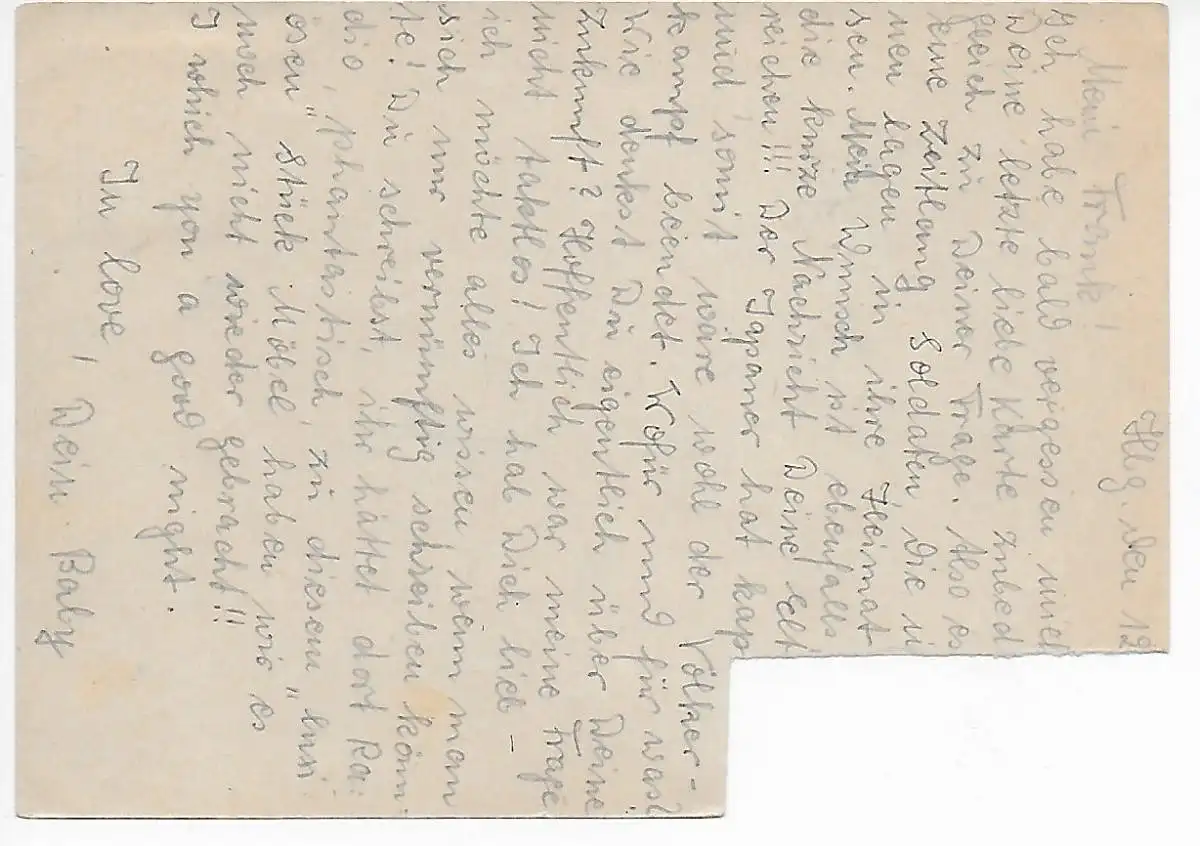 Hbg. den 12
Mein Frank!
Ich habe bald vergessen mich
Deine letzte liebe Karte zubed
gleich zu Deiner Frage. Also es
keine Zeitlang Soldaten die
nen lagen in ihre Heimat
sen. Mein Wunsch ist ebenfalls
die kurze Nachricht Deine
reichen!!! Der Japaner hat kap
und somit wäre wohl der Völker-
kampf beendet. Wofür und für was?
Wie denkst Du eigentlich über Deine
Zukunft? Hoffentlich war meine Frage
nicht taktlos! Ich hab Dich lieb –
ich möchte alles wissen wenn man
sich nur vernünftig schreiben könn-
te! Du schreibst, ihr hättet dort Ra-
dio, phantastisch, zu diesem "luxi
ösen" Stück Möbel haben wir es
noch nicht wieder gebracht!!
I which you a good night.
In love,
Dein Baby